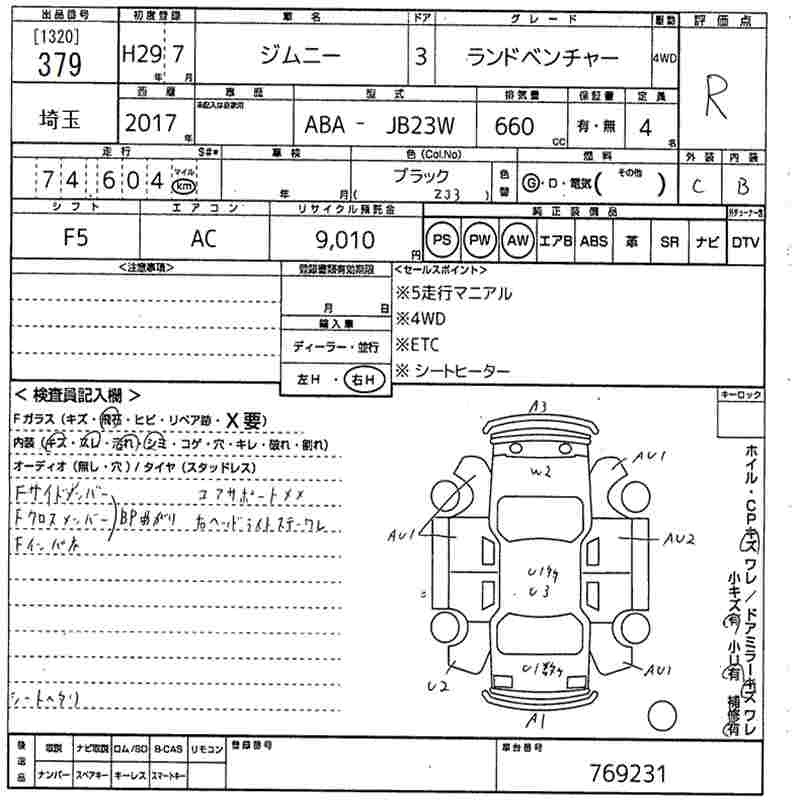 出品番号 初度登録 車名 ドア グレード 駆動 評価点
[1320]
379 H29 7 ジムニー 3 ランドベンチャー 4WD R
年 月
西暦 車歴 型式 排気量 保証書 定員
未記入は自家用
埼玉 2017 ABA - JB23W 660 有・無 4
年 cc 名
走行 S#* 車検 色(Col.No) 燃料 外装 内装
74,604 マイル km 年 月 ブラック 色替 Ⓖ・D・電気( その他 ) C B
( ZJ3 )
シフト エアコン リサイクル預託金 純正装備品
F5 AC 9,010 円 PS PW AW エアB ABS 革 SR ナビ DTV
<注意事項> 登録書類有効期限 <セールスポイント>
月 日 ※5走行マニアル
輸入車 ※4WD
ディーラー・並行 ※ETC
左H・右H ※ シートヒーター
< 検査員記入欄 > キーロック
Fガラス (キズ・飛石・ヒビ・リペア跡・X要)
内装 (キズ・スレ・汚れ・シミ・コゲ・穴・キレ・破れ・割れ)
オーディオ (無し・穴) / タイヤ (スタッドレス)
Fサイドメンバー コアサポートメメ
Fクロスメンバー BP曲がり 右ヘッドライトステーワレ
Fインパネ
シートヘタリ
A3
AU1
W2
AU1
AU2
U1
U3
U1
U2
AU1
A1
ホイル・CPキズ ワレ / ドアミラーキズ ワレ
小キズ有 小U有 補修有
後送品 取説 ナビ取説 ロム/SD B-CAS リモコン 登録番号 車台番号
ナンバー スペアキー キーレス スマートキー 769231